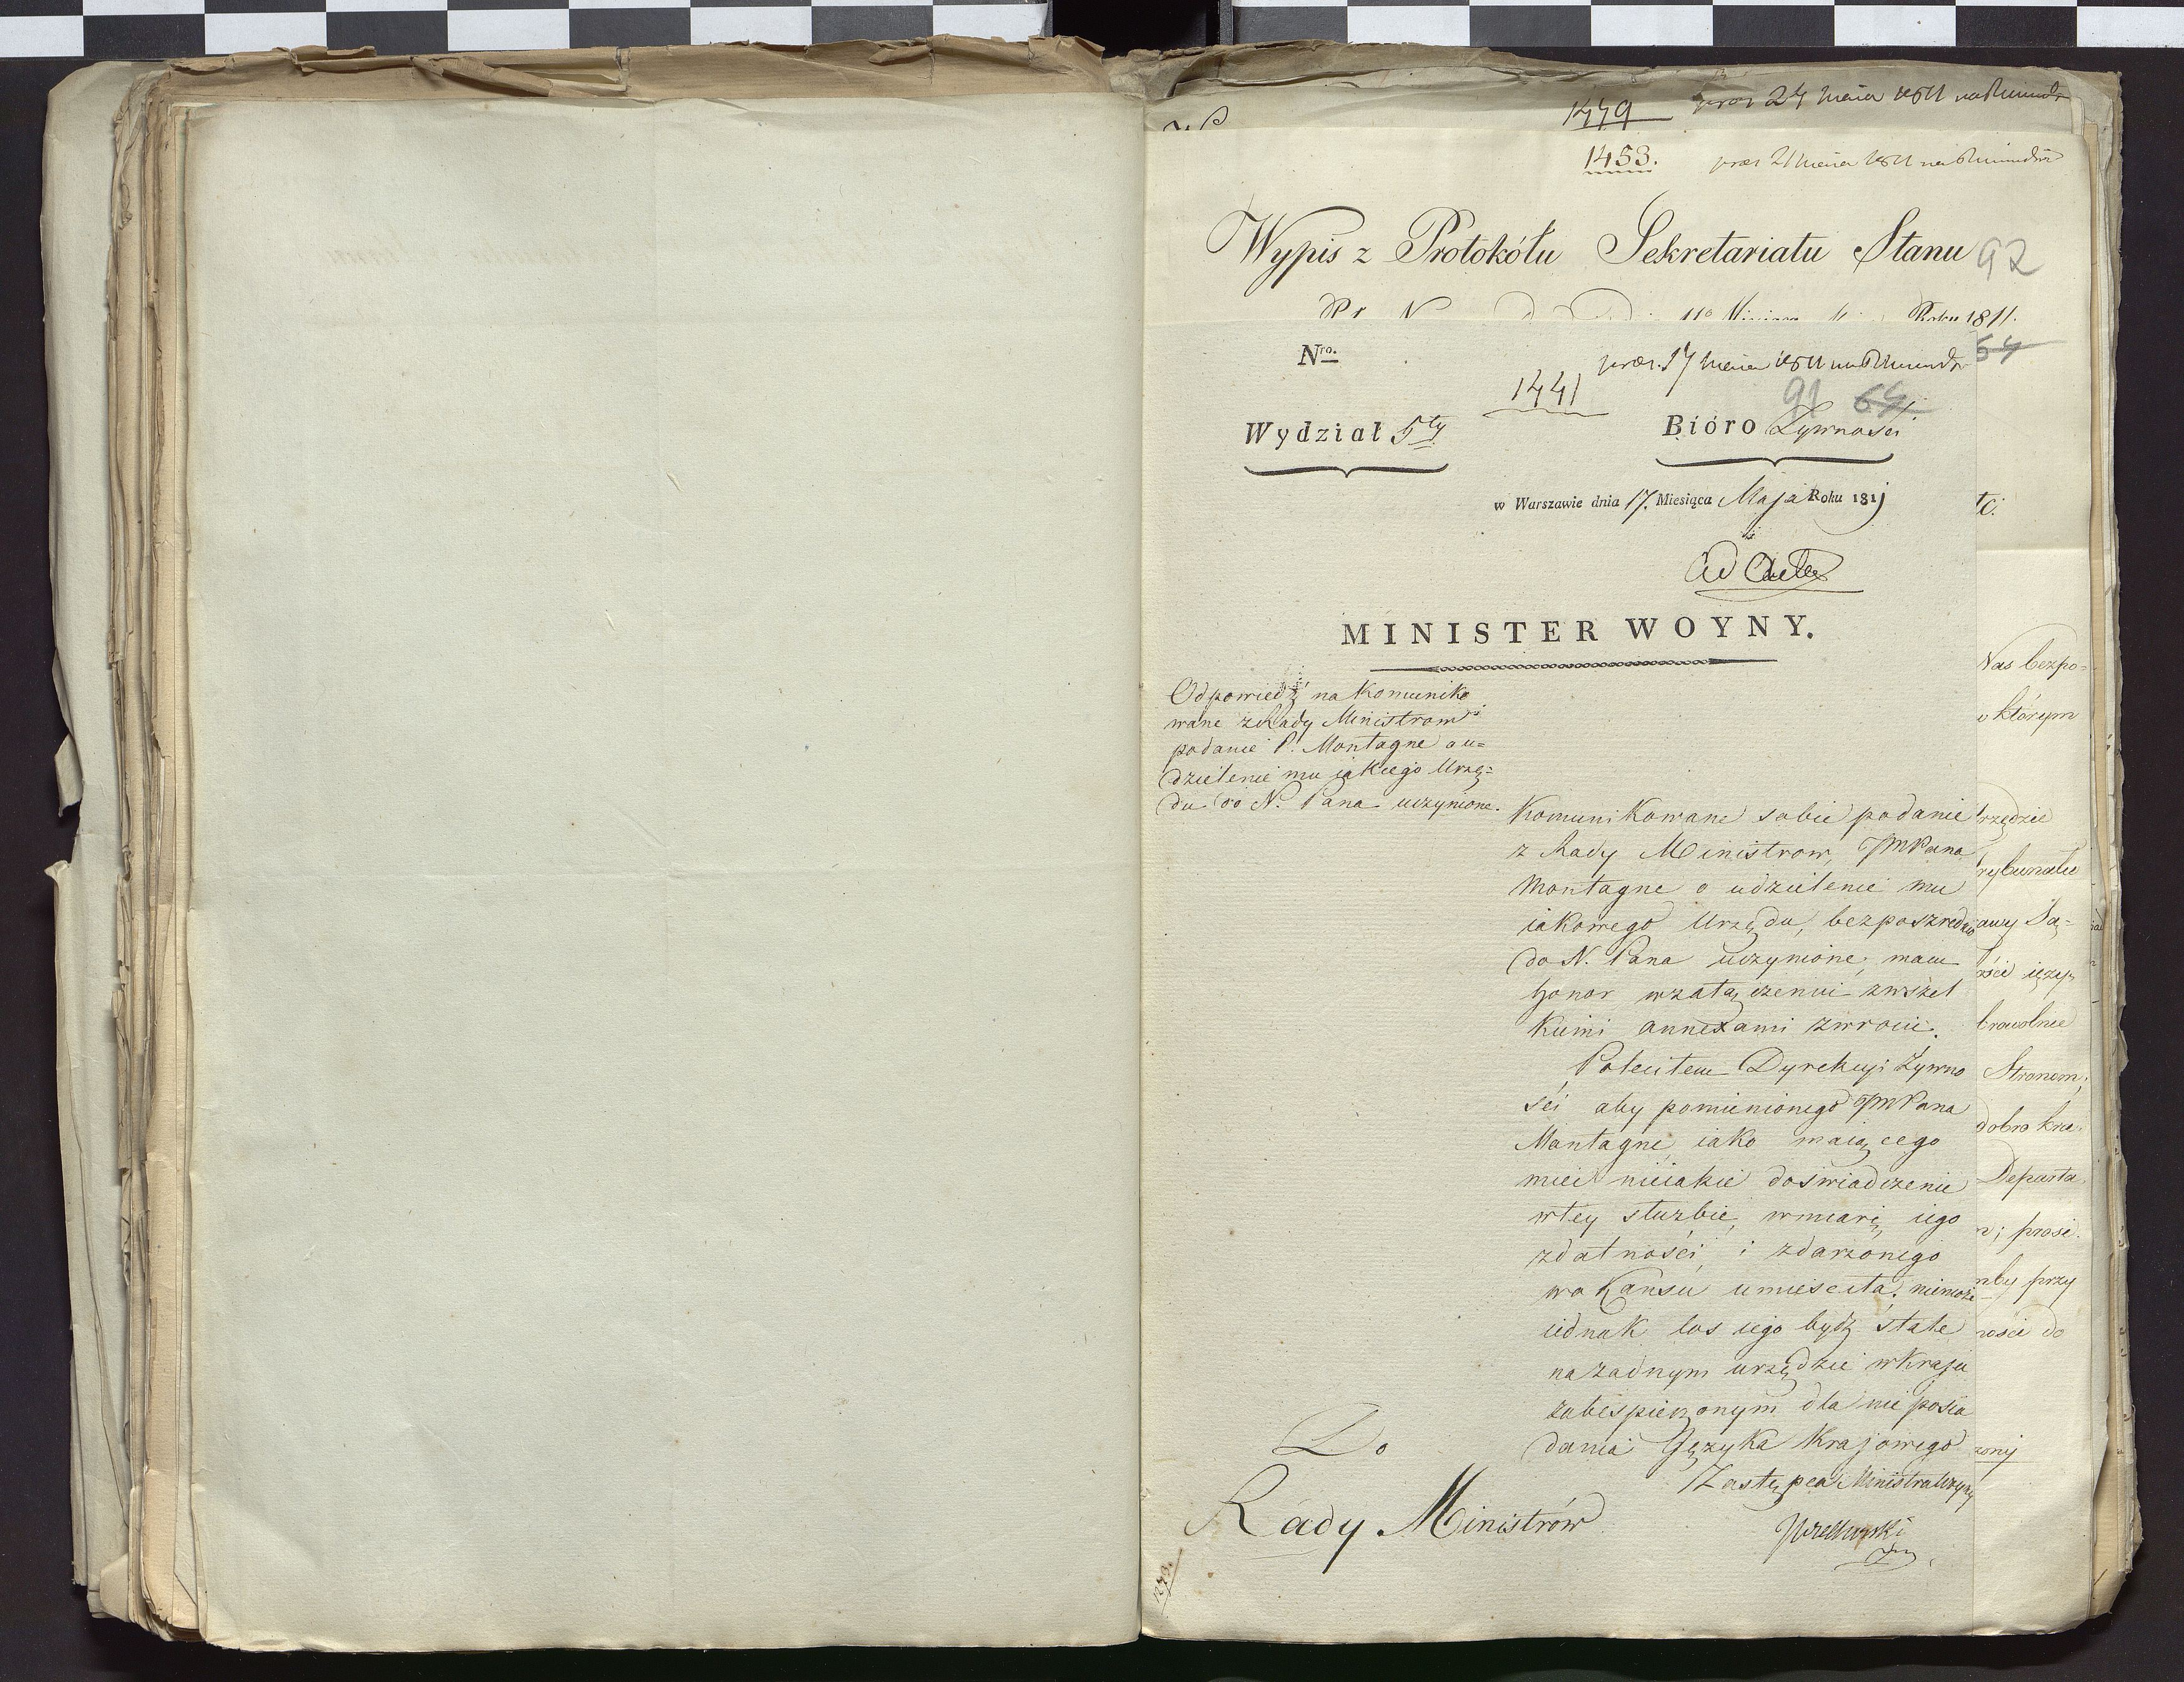 1479 præs 24 Maia 1811
1453. præs 21 Maia 1811
Wypis z Protokółu Sekretariatu Stanu 92
Roku 1811.
Nro. præs. 17 Maia 1811 64
1441
91 64
Wydział 5ty Bióro Żywności
w Warszawie dnia 17. Miesiąca Maja Roku 1811
tc.
Ad Acta
MINISTER WOYNY.
Odpowiedź na Komuniko
wane z Rady Ministrow
podanie P. Montagne o u=
dzielenie mu iakiego Urzę=
du do N. Pana uczynione.
Komunikowane sobie podanie
z Rady Ministrow, JmPana
Montagne o udzielenie mu
iakowego Urzędu, bezposzrednio
do N. Pana uczynione, mam
honor wzałączeniu zwszel
kiemi annexami zwrocić.
Poleciłem Dyrekcyi Żywno
ści aby pomienionego JmPana
Montagne, iako maiącego
mieć nieiakie doświadczenie
wtey służbie, wmiarę iego
zdatności, i zdarzonego
wakansu umieściła; niemoże
iednak los iego bydź stale
nażadnym urzędzie wKraju
zabespieczonym dla nie posia
dania Języka Krajowego
Zastępca Ministra Woyny
Wielhorski
Do
Rády Ministrów
Nas bezpo=
o którym
rzędzie
rybunału
awy Są=
ości ięzy
browolnie
Stronom;
dobro kra
Departa
n; prosi
mby przy
ności do
zony